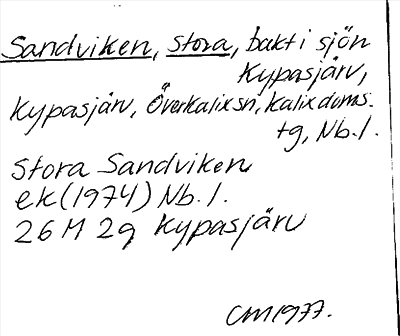 Sandviken, Stora, bukt i sjön
Kypasjärv,
Kypasjärv, Överkalix sn, Kalix doms.
tg, Nb. l.
Stora Sandviken
ek (1974) Nb. l.
26 M 2g Kypasjärv
CM 1977.